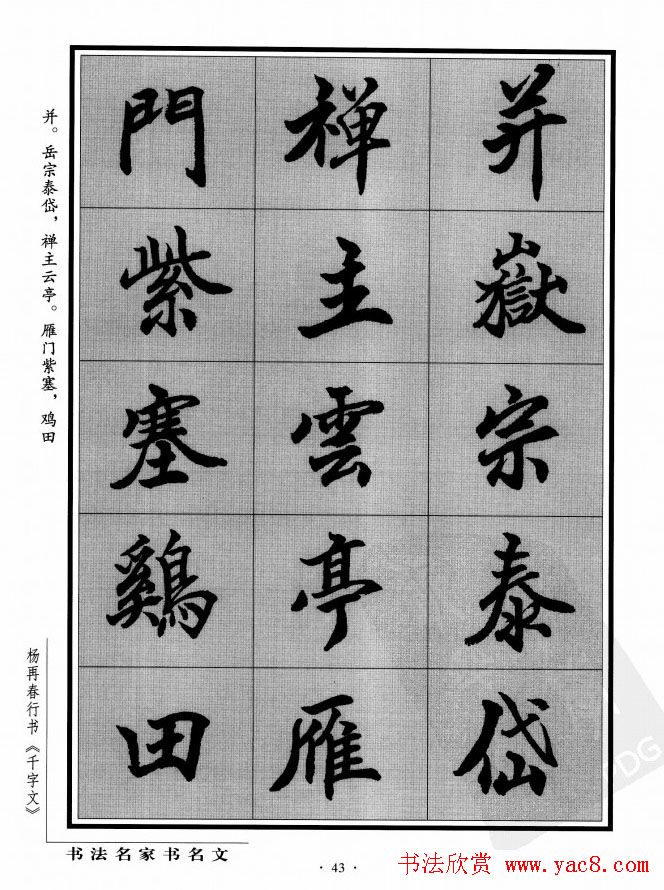 并嶽宗泰岱
禪主雲亭雁
門紫塞鷄田
并。岳宗泰岱，禅主云亭。雁门紫塞，鸡田
杨再春行书《千字文》
书法名家书名文
· 43 ·
书法欣赏 www.yac8.com